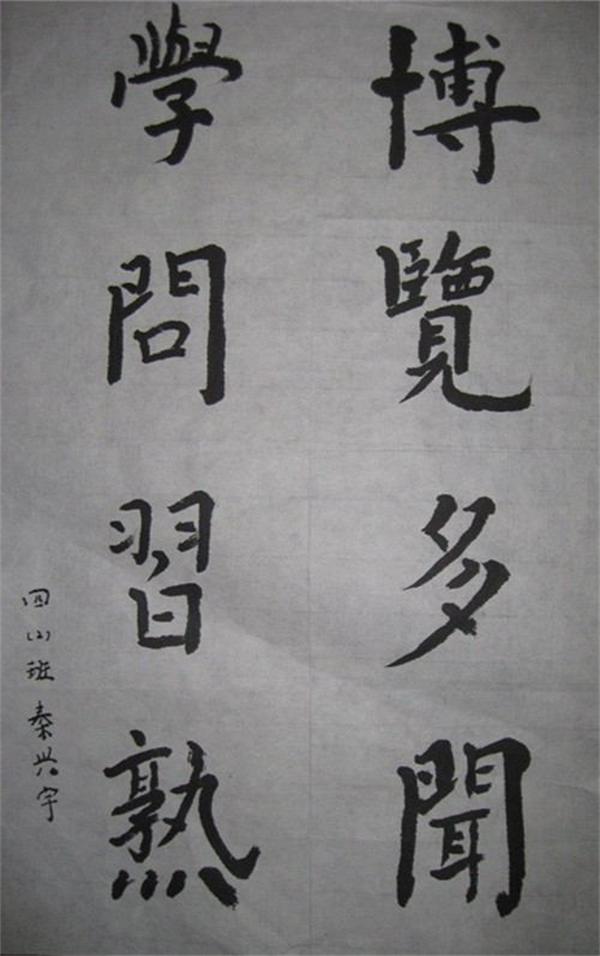 博覽多聞
學問習熟
四(2)班秦兴宇